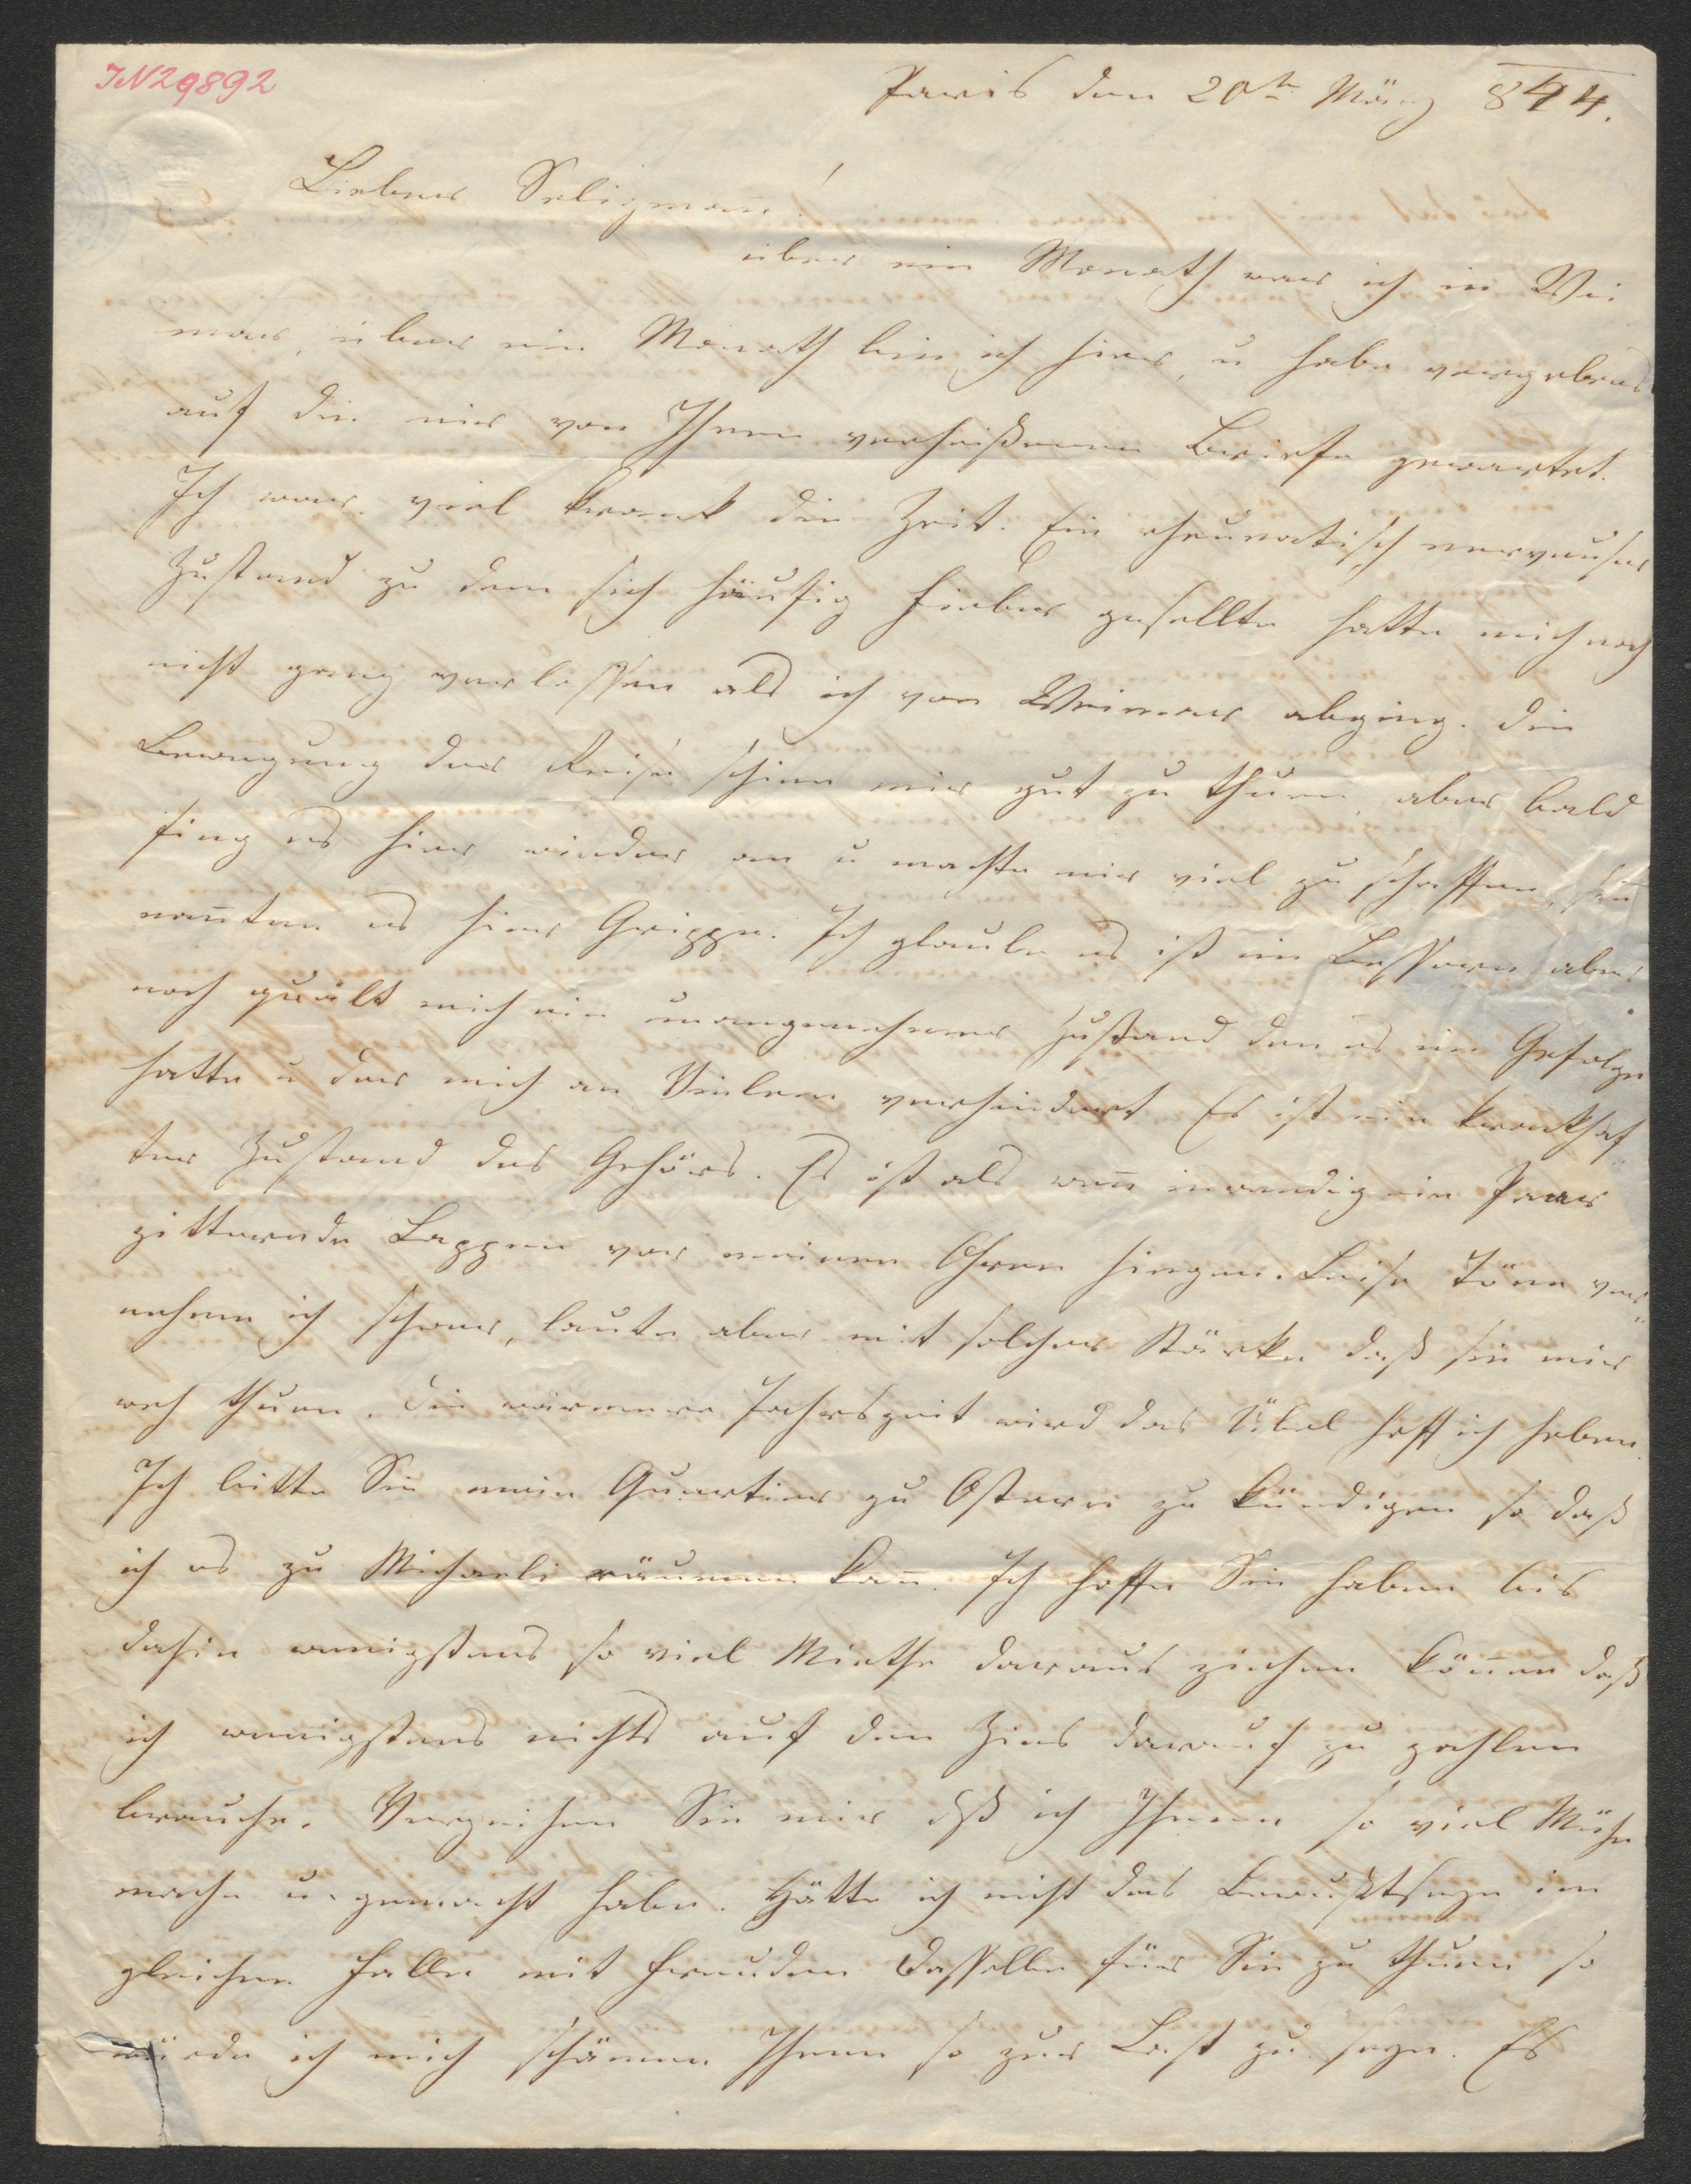 IN 29892
Paris den 20t März 844.
Lieber Seligmañ!
über ein Monath war ich in Wei
mar, über ein Monath bin ich hier, u habe vergebens
auf die mir von Ihnen verheißenen Briefe gewartet.
Ich war viel krank die Zeit. Ein rheumatisch nerveuser
Zustand zu dem sich häufig Fieber gesellte hatte mich noch
nicht ganz verlassen als ich von Weimar abging. Die
Bewegung der Reise schien mir gut zu thuen, aber bald
fing es hier wieder an u machte mir viel zu schaffen, sie
nañten es hier Grippe. Ich glaube es ist im Bessern aber
noch quält mich ein unangenehmer Zustand den es im Gefolge
hatte u der mich an Vielem verhindert. Es ist ein krankhaf
ter Zustand des Gehörs. Es ist als weñ inwendig ein Paar
zitternde Lappen vor meinen Ohren hingen. Leise Töne ver
nehme ich schwer, laute aber mit solcher Stärke daß sie mir
weh thuen. Die wärmere Jahrszeit wird das Übel hoff ich heben.
Ich bitte Sie mein Quartier zu Ostern zu kündigen so daß
ich es zu Michaeli räumen kañ. Ich hoffe Sie haben bis
dahin wenigstens so viel Miethe daraus ziehen köñen daß
ich wenigstens nichts auf den Zins darauf zu zahlen
brauche. Verzeihen Sie mir dß ich Ihnen so viel Mühe
mache u. gemacht habe. Hätte ich nicht das Bewußtseyn im
gleichen Falle mit Freuden dasselbe für Sie zu thuen so
würde ich mich schämen Ihnen so zur Last zu seyn. Es